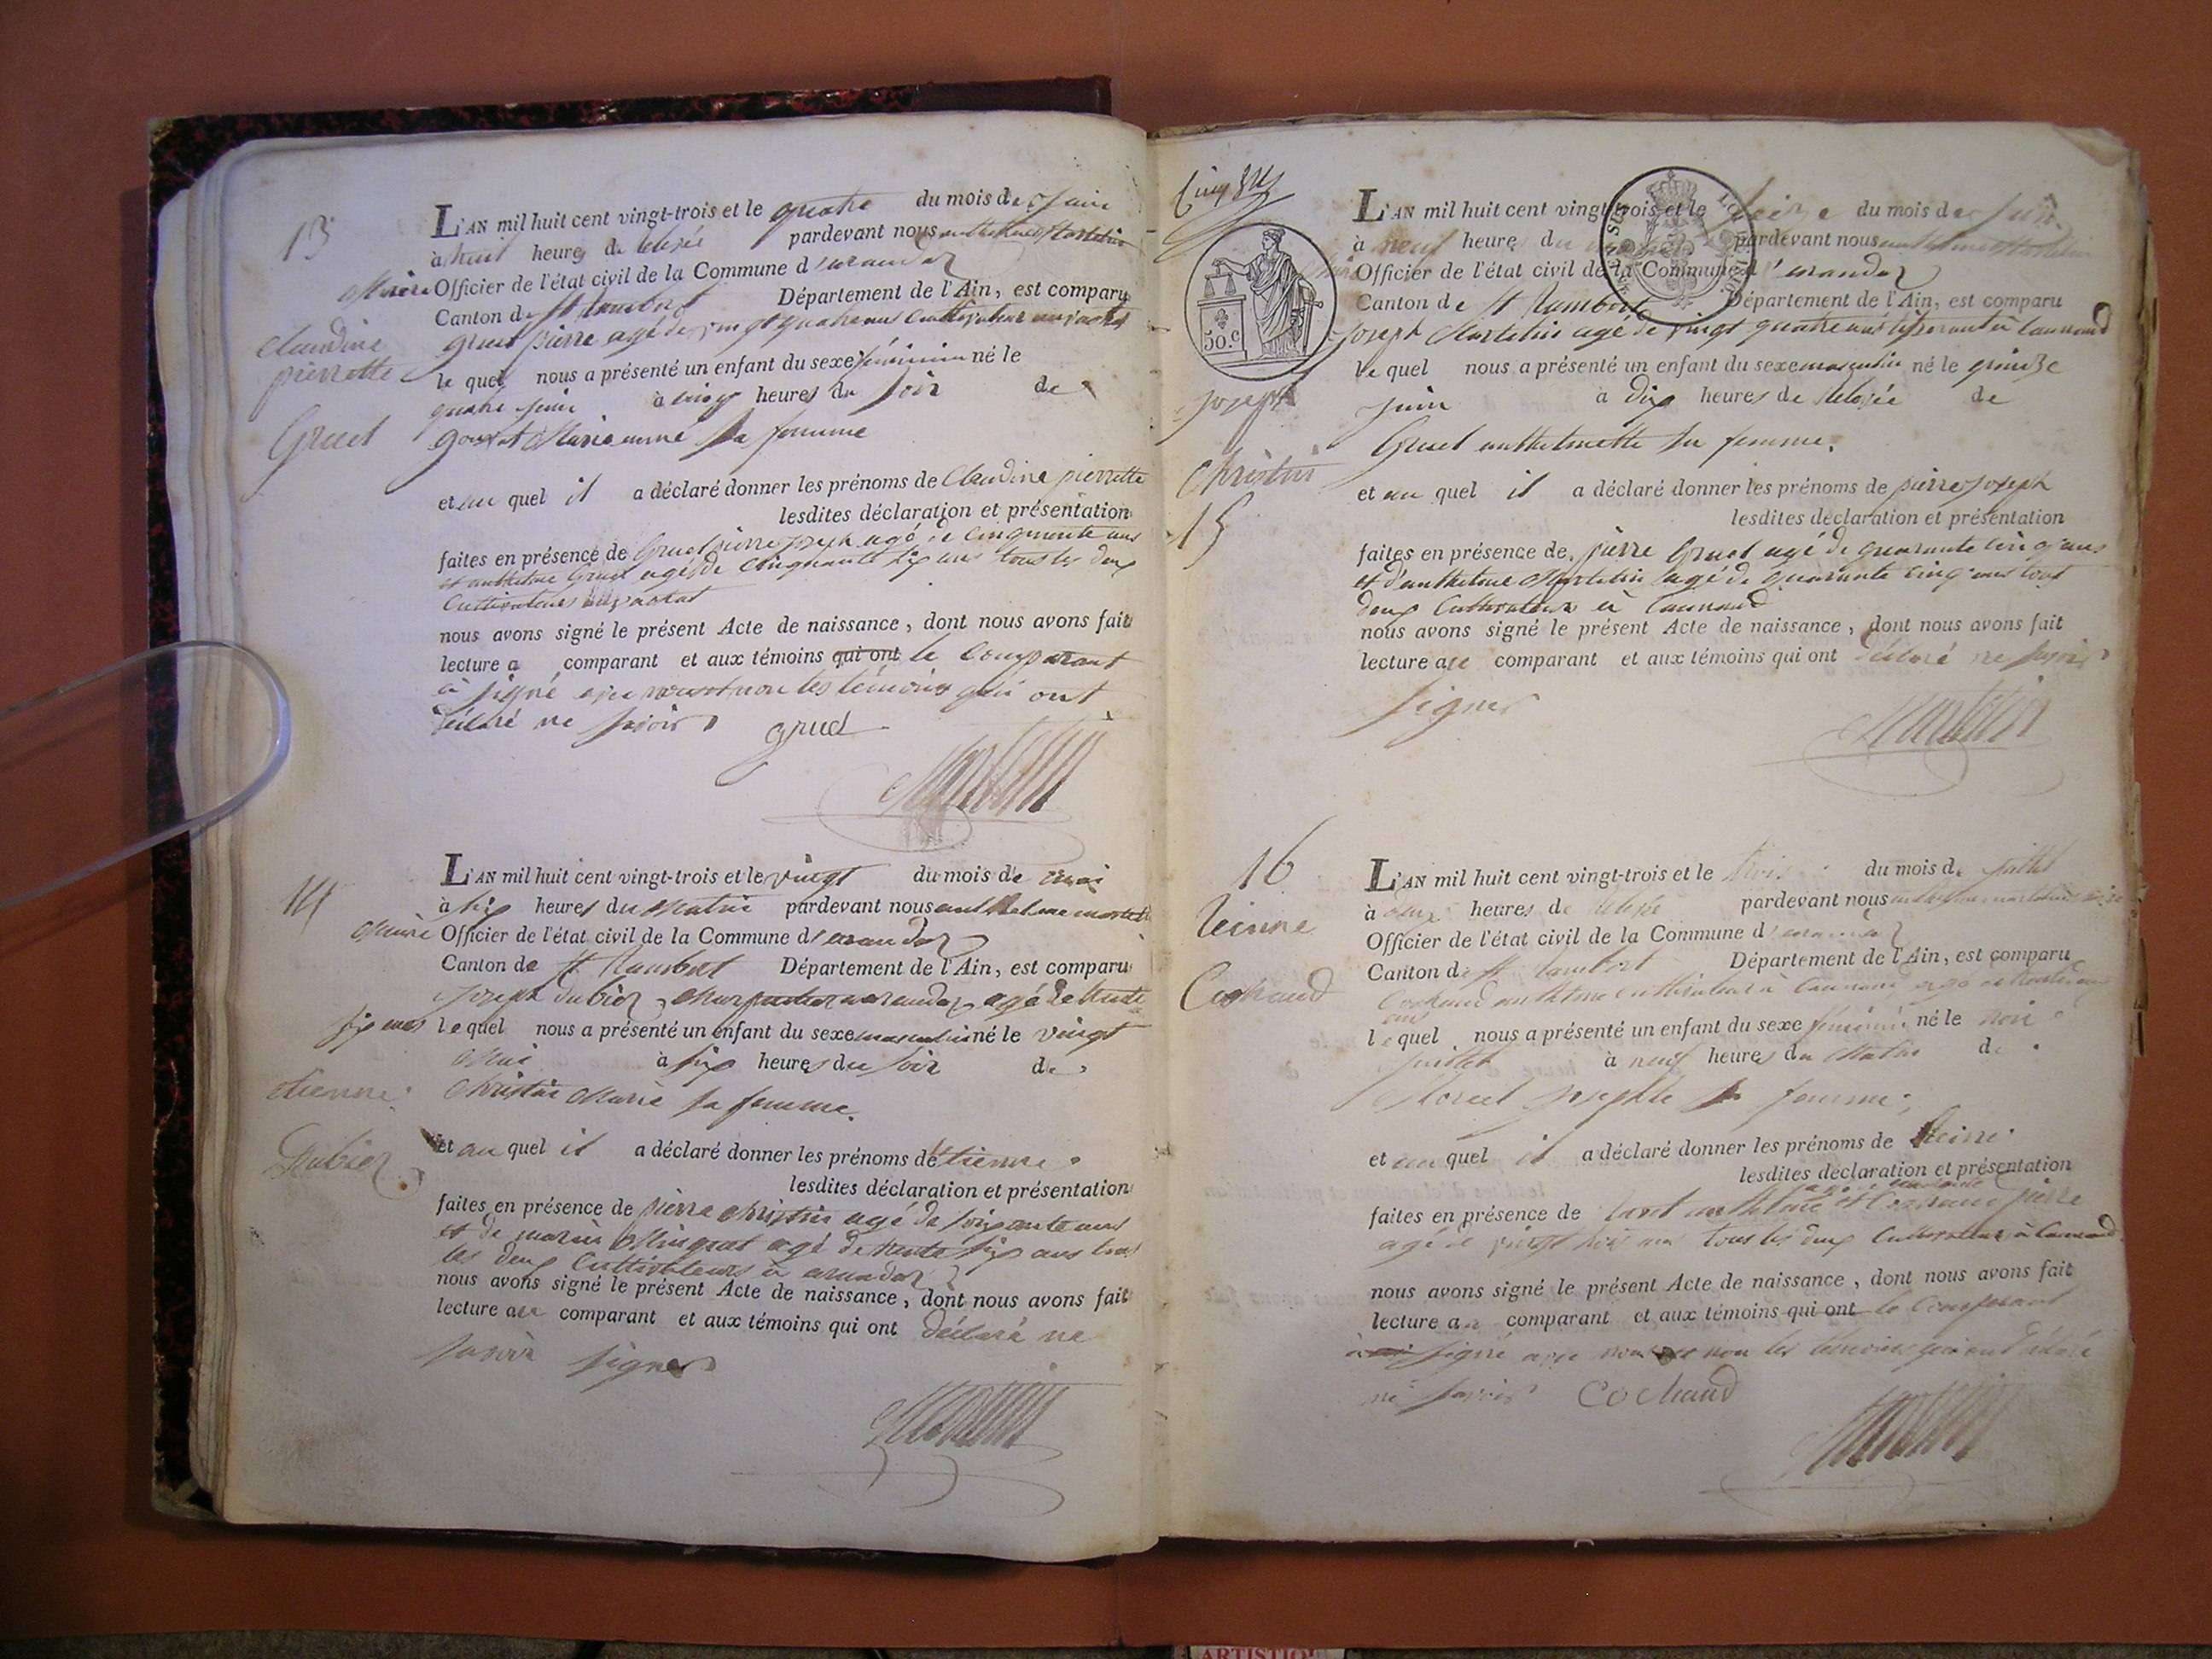 13
L'AN mil huit cent vingt-trois et le quatre du mois de Juin
à huit heures de relevée pardevant nous anthelme Martelin
Maire Officier de l'état civil de la Commune d'arandas
Canton de St Rambert Département de l'Ain, est comparu
Claudine
pierrette
Gruet
gruet pierre agé de vingt quatre ans Cultivateur
le quel nous a présenté un enfant du sexe féminin né le
quatre Juin à cinq heures du soir de
Marie sa femme
et au quel il a déclaré donner les prénoms de Claudine pierrette
lesdites déclaration et présentation
faites en présence de Gruet pierre Joseph agé de Cinquante ans
et anthelme Gruet agé de Cinquante six ans tous les deux
Cultivateurs
nous avons signé le présent Acte de naissance, dont nous avons fait
lecture a comparant et aux témoins qui ont le Comparant
à signé avec nous et non les témoins qui ont
déclaré ne savoir
gruet
Martelin
14
L'AN mil huit cent vingt-trois et le vingt du mois de mai
à six heures du Matin pardevant nous anthelme martelin
Maire Officier de l'état civil de la Commune d'arandas
Canton de St Rambert Département de l'Ain, est comparu
Joseph Dubiez, Charpentier a arandas, agé de trente
six ans le quel nous a présenté un enfant du sexe masculin né le vingt
Mai à six heures du soir de
Christin Marie sa femme.
Etienne
Dubiez
et au quel il a déclaré donner les prénoms d'Etienne
lesdites déclaration et présentation
faites en présence de pierre Christin agé de soixante ans
et de marin Minguat agé de trente six ans tous
les deux Cultivateurs à arandas
nous avons signé le présent Acte de naissance, dont nous avons fait
lecture au comparant et aux témoins qui ont déclaré ne
savoir signer
Martelin
L'AN mil huit cent vingt-trois et le seize du mois de Juin
à neuf heures du pardevant nous anthelme Martelin
Officier de l'état civil de la Commune d'arandas
Canton de St Rambert Département de l'Ain, est comparu
50.c
Joseph Martelin agé de vingt quatre ans
le quel nous a présenté un enfant du sexe masculin né le quinze
Joseph
Juin à dix heures de Relevée de
Gruet anthelmette sa femme.
Christin
15
et au quel il a déclaré donner les prénoms de pierre Joseph
lesdites déclaration et présentation
faites en présence de pierre Gruet agé de quarante cinq ans
et d'anthelme Martelin agé de quarante cinq ans tout
deux Cultivateurs à
nous avons signé le présent Acte de naissance, dont nous avons fait
lecture au comparant et aux témoins qui ont déclaré ne savoir
signer
Martelin
16
Reinne
Cochaud
L'AN mil huit cent vingt-trois et le trois du mois de Juillet
à deux heures de relevée pardevant nous anthelme martelin
Officier de l'état civil de la Commune d'arandas
Canton de St Rambert Département de l'Ain, est comparu
Cochaud anthelme Cultivateur à agé de
ans
le quel nous a présenté un enfant du sexe féminin né le trois
Juillet à neuf heures du Matin de
Morcel sa femme
et au quel il a déclaré donner les prénoms de Reinne
lesdites déclaration et présentation
faites en présence de anthelme et Cochaud pierre
agé de vingt trois ans tous les deux Cultivateurs à
nous avons signé le présent Acte de naissance, dont nous avons fait
lecture au comparant et aux témoins qui ont le Comparant
à signé avec nous et non les témoins qui ont déclaré
ne savoir
Cochaud
Martelin